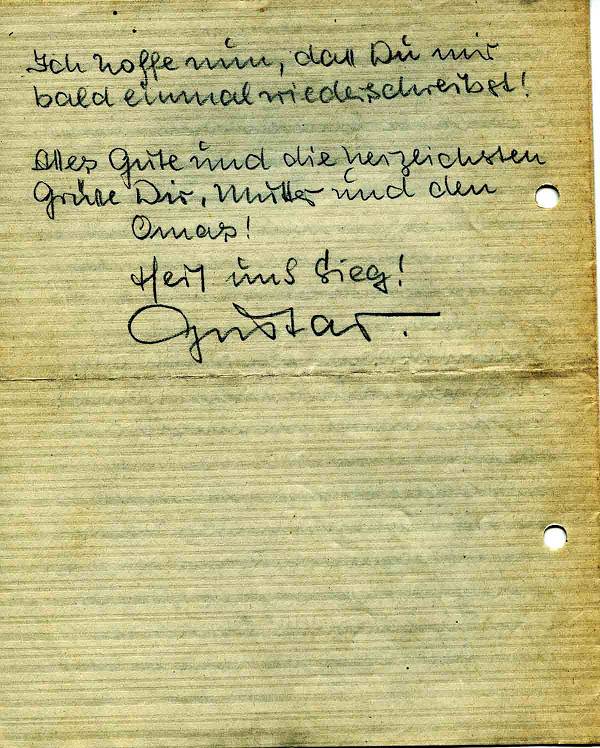 Ich hoffe nun, daß Du mir
bald einmal wiederschreibst!
Alles Gute und die herzlichsten
Grüße Dir, Mutter und den
Omas!
Heil und Sieg!
Gustav.